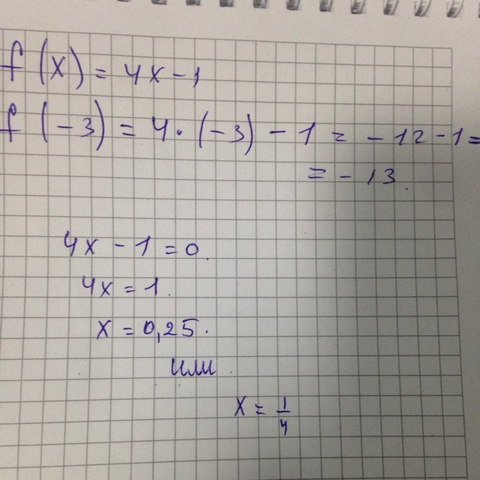 f (x) = 4x - 1
f (-3) = 4 · (-3) - 1 = -12 - 1 =
= -13.
4x - 1 = 0.
4x = 1.
x = 0,25.
или
x = 1/4